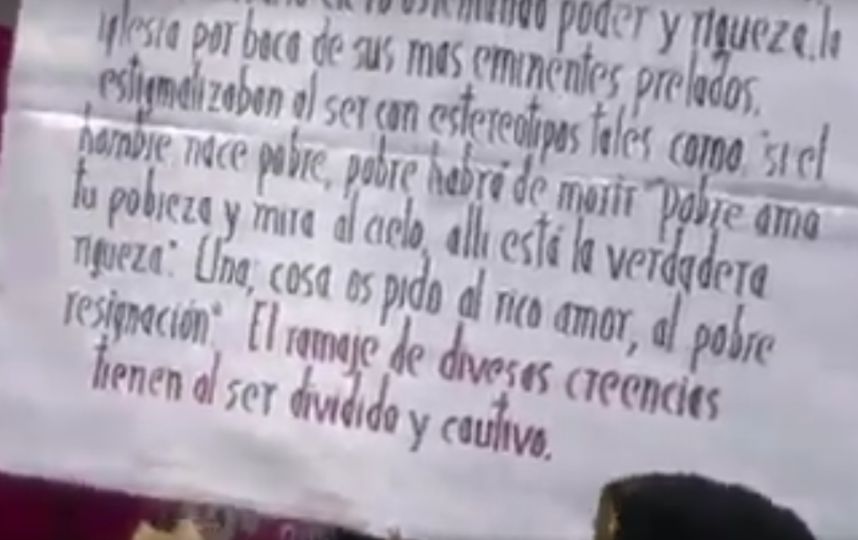 poder y riqueza, la
iglesia por boca de sus mas eminentes prelados,
estigmatizaban al ser con estereotipos tales como, "si el
hombre nace pobre, pobre habrá de morir" "pobre ama
tu pobreza y mira al cielo, alli está la verdadera
riqueza". Una, cosa os pido al rico amor, al pobre
resignación" El ramaje de divesas creencias
tienen al ser dividido y cautivo.